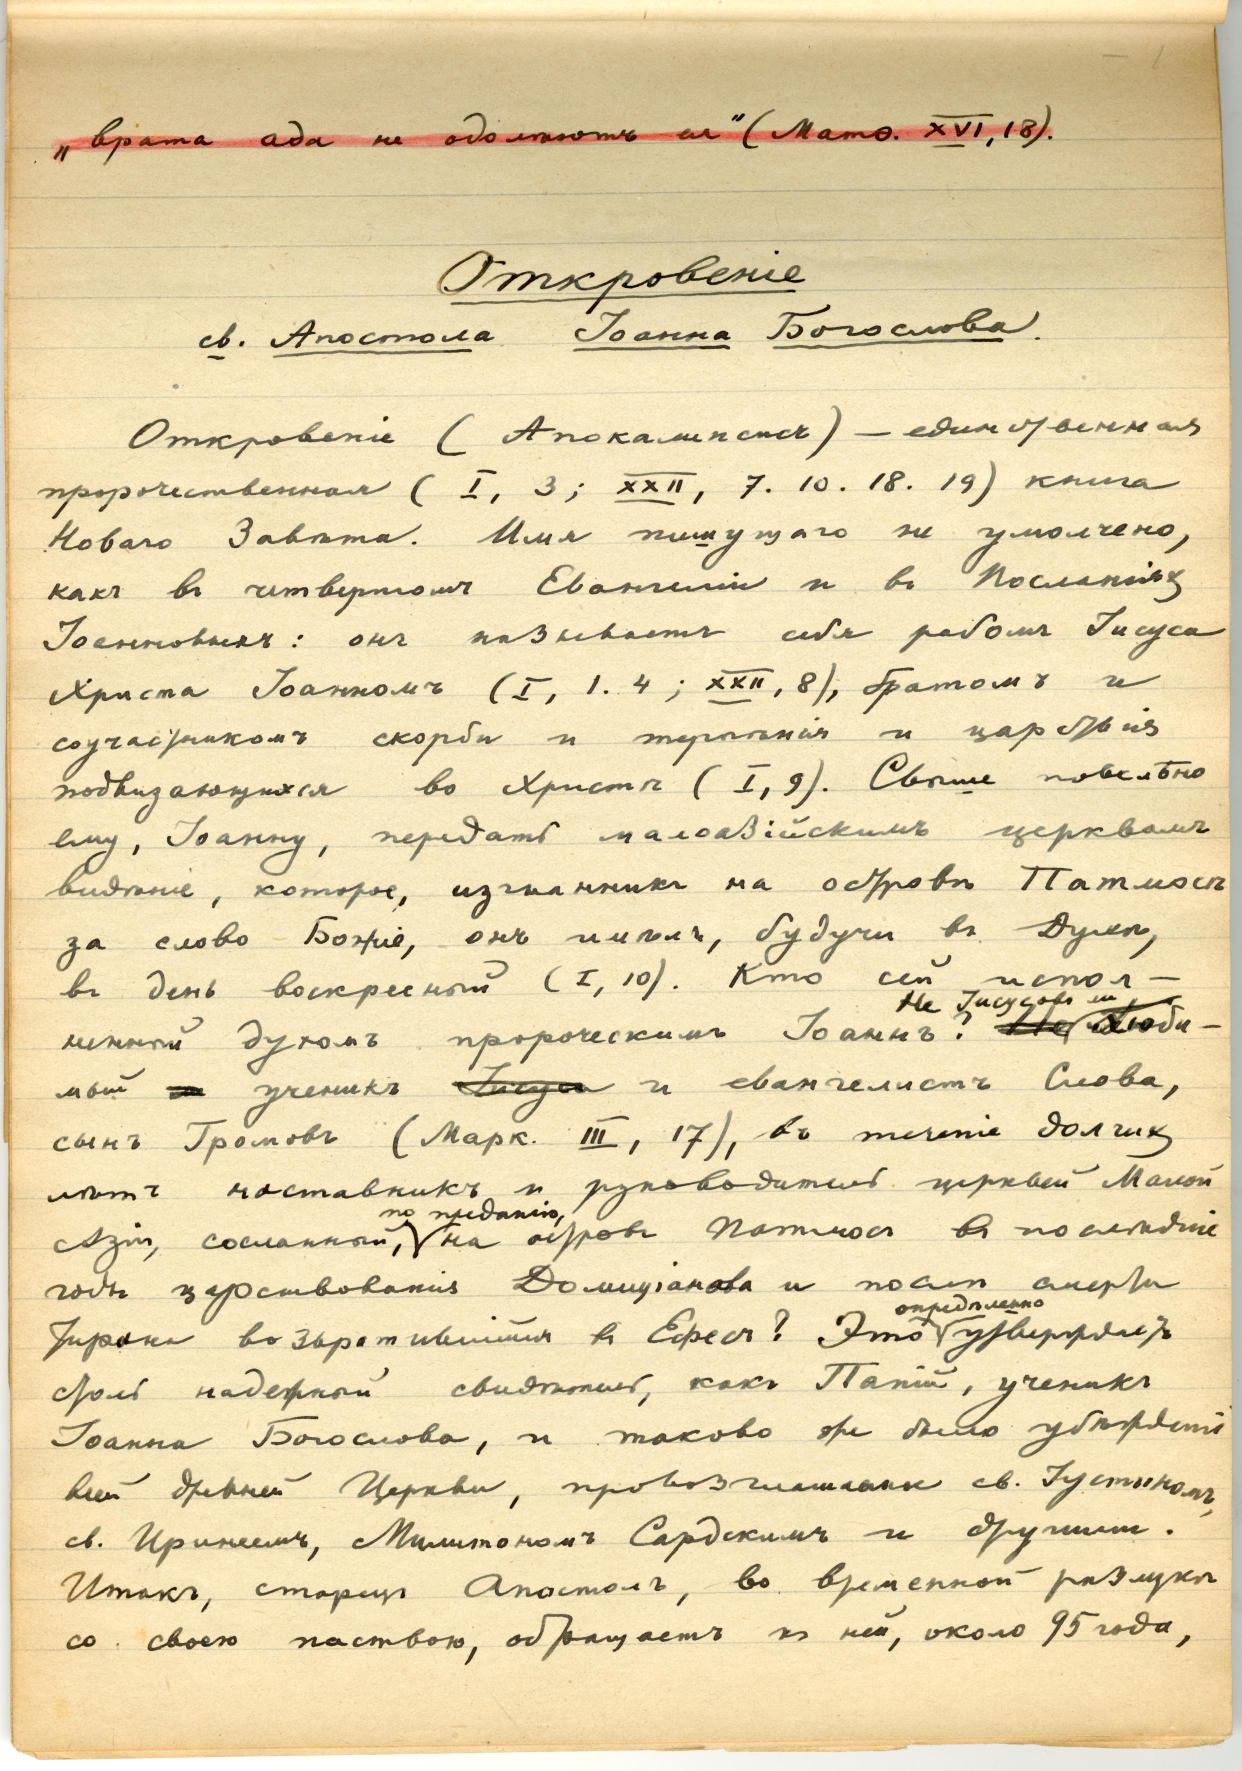 „врата ада не одолѣютъ ея" (Матѳ. XVI, 18).
Откровеніе
св. Апостола Іоанна Богослова.
Откровеніе (Апокалипсисъ) — единственная
пророчественная (I, 3; XXII, 7. 10. 18. 19) книга
Новаго Завѣта. Имя пишущаго не умолчено,
какъ въ четвертомъ Евангеліи и въ Посланіяхъ
Іоанновыхъ: онъ называетъ себя рабомъ Іисуса
Христа Іоанномъ (I, 1. 4; XXII, 8), братомъ и
соучастникомъ скорби и терпѣнія и царствія
подвизающихся во Христѣ (I, 9). Свыше повелѣно
ему, Іоанну, передать малоазійскимъ церквамъ
видѣніе, которое, изгнанникъ на островѣ Патмосъ
за слово Божіе, онъ имѣлъ, будучи въ Духѣ,
въ день воскресный (I, 10). Кто сей испол-
Не Іисусовъ ли
ненный духомъ пророческимъ Іоаннъ? люби-
мый ученикъ и евангелистъ Слова,
сынъ Громовъ (Марк. III, 17), въ теченіе долгихъ
лѣтъ наставникъ и руководитель церквей Малой
по преданію,
Азіи, сосланный, на островъ Патмосъ въ послѣдніе
годы царствованія Домиціанова и послѣ смерти
тирана возвратившійся въ Ефесъ? Это утверждаетъ
опредѣленно
столь надежный свидѣтель, какъ Папій, ученикъ
Іоанна Богослова, и таково же было убѣжденіе
всей древней Церкви, провозглашаемое св. Іустиномъ,
св. Иринеемъ, Мелитономъ Сардскимъ и другими.
Итакъ, старецъ Апостолъ, во временной разлукѣ
со своею паствою, обращаетъ къ ней, около 95 года,